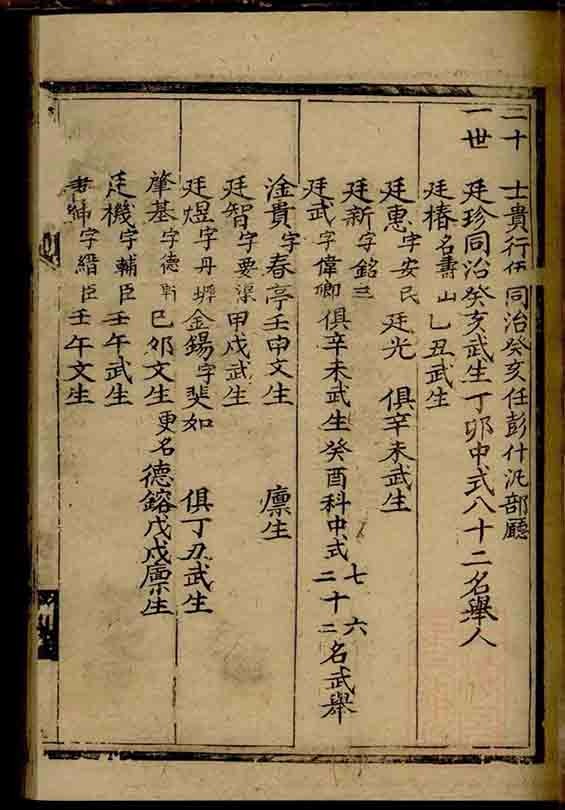 二十一世
士貴行伍 同治癸亥任彭什汛部廳
廷珍同治癸亥武生丁卯中式八十二名舉人
廷椿名壽山乙丑武生
廷惠字安民 廷光 俱辛未武生
廷新字銘三
廷武字偉卿 俱辛未武生癸酉科中式七十六 二十二名武舉
淦貴字春亭壬申文生 廪生
廷智字要渠甲戌武生
廷煜字丹墀金錫字斐如 俱丁丑武生
肇基字德 己夘文生更名德鎔戊戌廪生
廷機字輔臣壬午武生
書紳字縉臣壬午文生